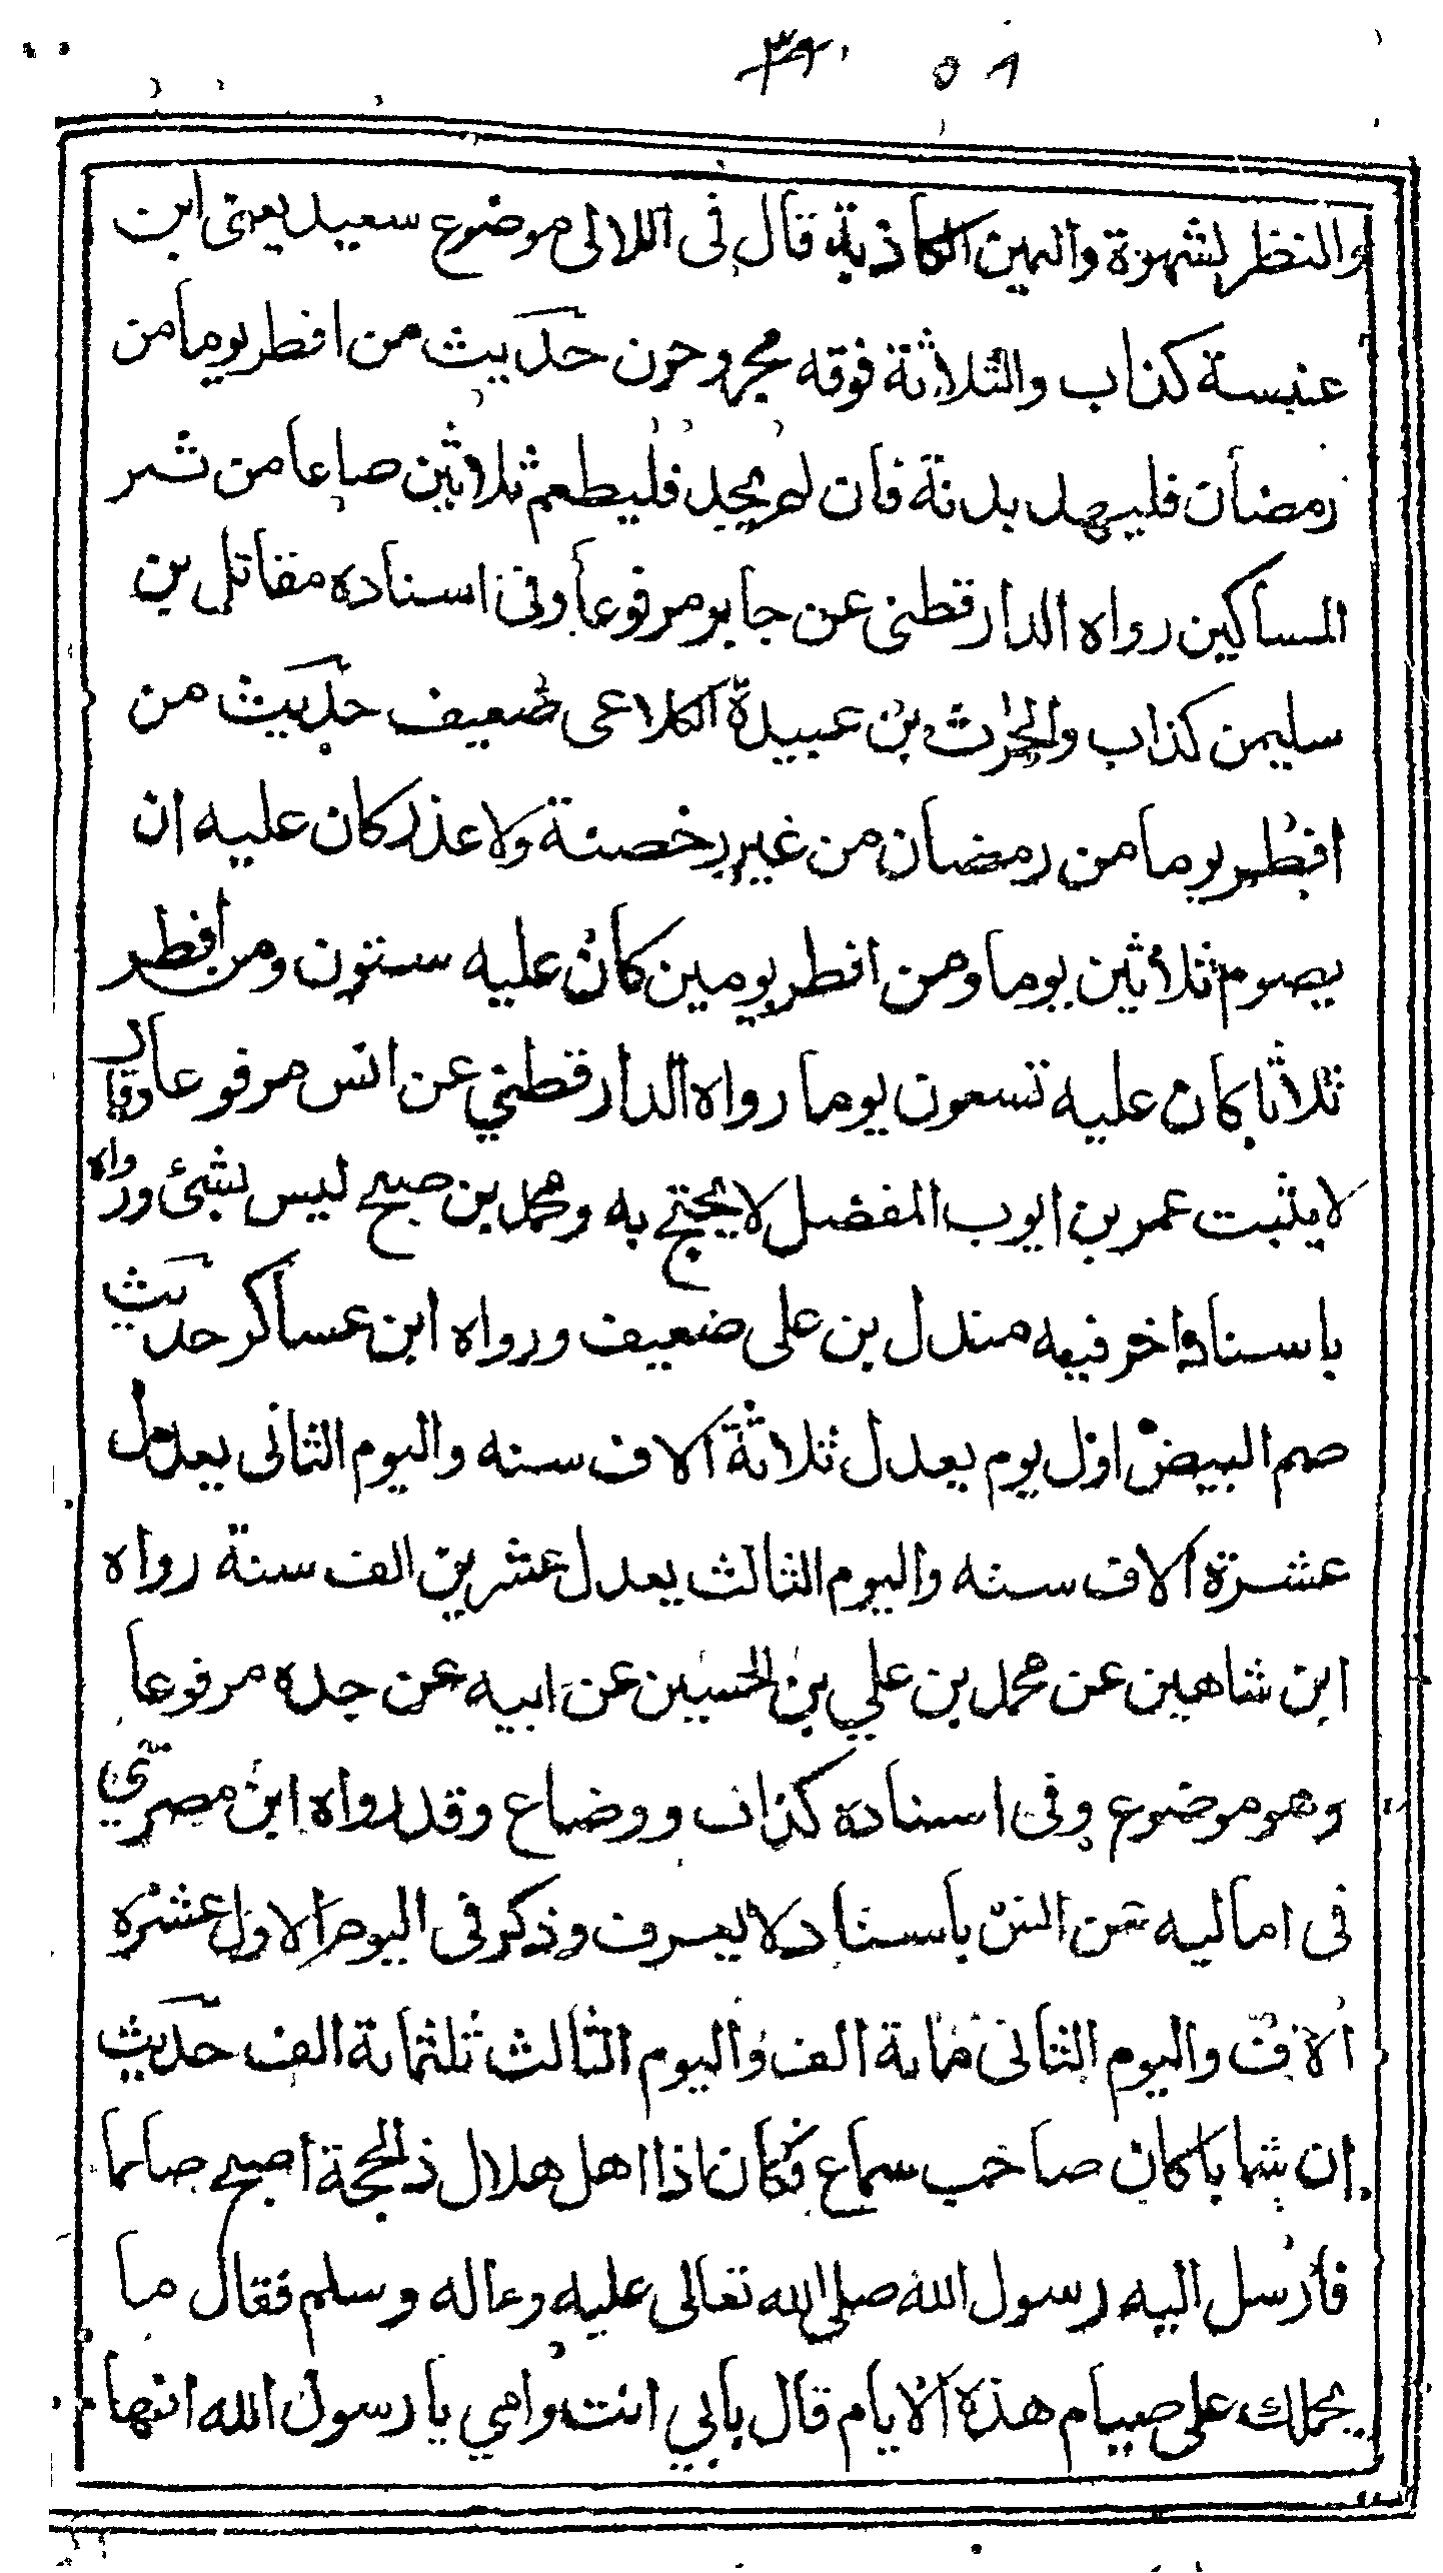 ٣٩ ٥٩
والنظر لشهوة واليمين الكاذبة قال في اللالى موضوع سعيد يعنى ابن
عنبسة كذاب والثلاثة فوقه مجروحون حديث من افطر يوما من
رمضان فليهد بدنة فان لم يجد فليطعم ثلاثين صاعا من تمر
المساكين رواه الدارقطنى عن جابر مرفوعا وفى اسناده مقاتل بن
سليمن كذاب والحرث بن عبيدة الكلاعى ضعيف حديث من
افطر يوما من رمضان من غير رخصة ولا عذر كان عليه ان
يصوم ثلاثين يوما ومن افطر يومين كان عليه ستون ومن افطر
ثلاثا كان عليه تسعون يوما رواه الدارقطني عن انس مرفوعا وقال
لا يثبت عمر بن ايوب المفضل لا يحتج به ومحمد بن صبيح ليس بشئ ورواه
باسناد اخر فيه مندل بن على ضعيف ورواه ابن عساكر حديث
صم البيض اول يوم يعدل ثلاثة الاف سنه واليوم الثانى يعدل
عشرة الاف سنه واليوم الثالث يعدل عشرين الف سنة رواه
ابن شاهين عن محمد بن علي بن الحسين عن ابيه عن جده مرفوعا
وهو موضوع وفى اسناده كذاب ووضاع وقد رواه ابن مصرى
فى اماليه عن انس باسناد لا يعرف وذكر فى اليوم الاول عشره
الاف واليوم الثانى مائة الف واليوم الثالث ثلثمائة الف حديث
ان شابا كان صاحب سماع فكان اذا اهل هلال ذالحجة اصبح صائما
فأرسل اليه رسول الله صلى الله تعالى عليه وعاله وسلم فقال ما
يحملك على صيام هذه الايام قال بأبي انت وامي يا رسول الله انها